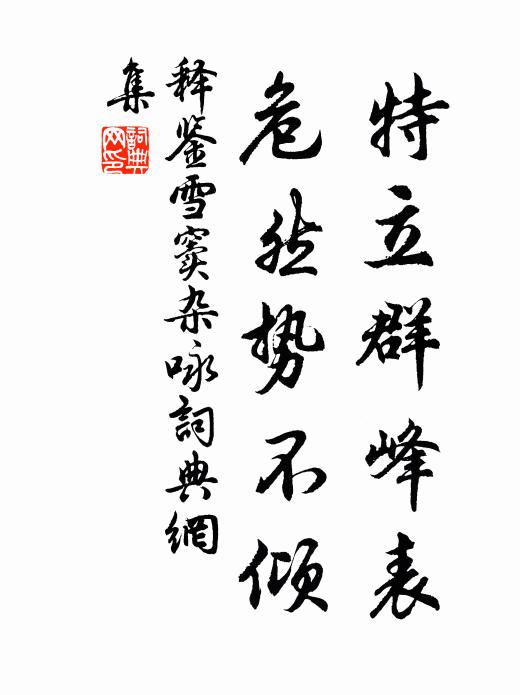 特立群峰表
危然势不倾
释鉴雪窦杂咏詞典網
集
詞典网印